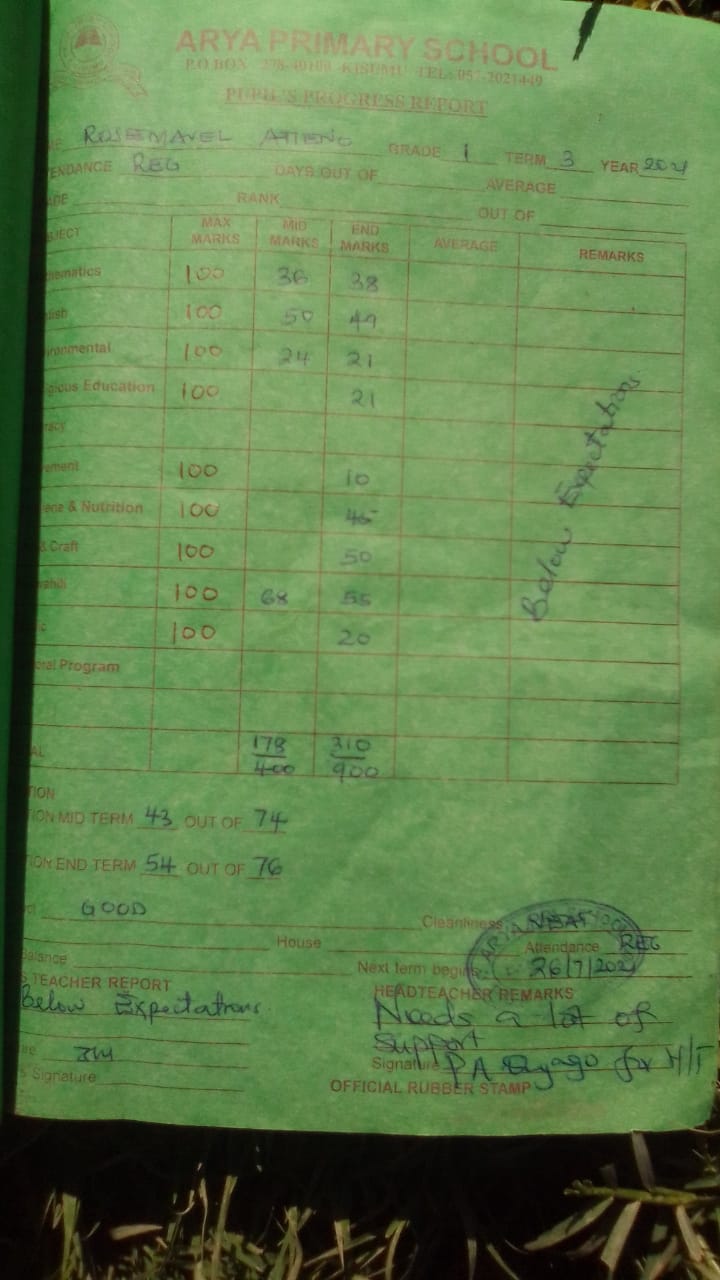 ARYA PRIMARY SCHOOL
P.O BOX - 278-40100 KISUMU TEL: 057-2021449
PUPIL'S PROGRESS REPORT
ROSEMAVEL ATIENO GRADE 1 TERM 3 YEAR 2021
ENDANCE REG DAYS OUT OF AVERAGE
ADE RANK OUT OF
JECT MAX MARKS MID MARKS END MARKS AVERAGE REMARKS
hematics 100 36 38
lish 100 50 49
ironmental 100 24 21
gious Education 100 21
racy
ement 100 10
ene & Nutrition 100 45
& Craft 100 50
ahili 100 68 55
c 100 20
oral Program
Below Expectations
AL 178/400 310/900
TION
ION MID TERM 43 OUT OF 74
ION END TERM 54 OUT OF 76
GOOD Cleanliness NEAT
House Attendance REG
Balance Next term begins 26/7/2021
S TEACHER REPORT HEADTEACHER REMARKS
Below Expectations Needs a lot of
support
Signature for H/T
s Signature OFFICIAL RUBBER STAMP